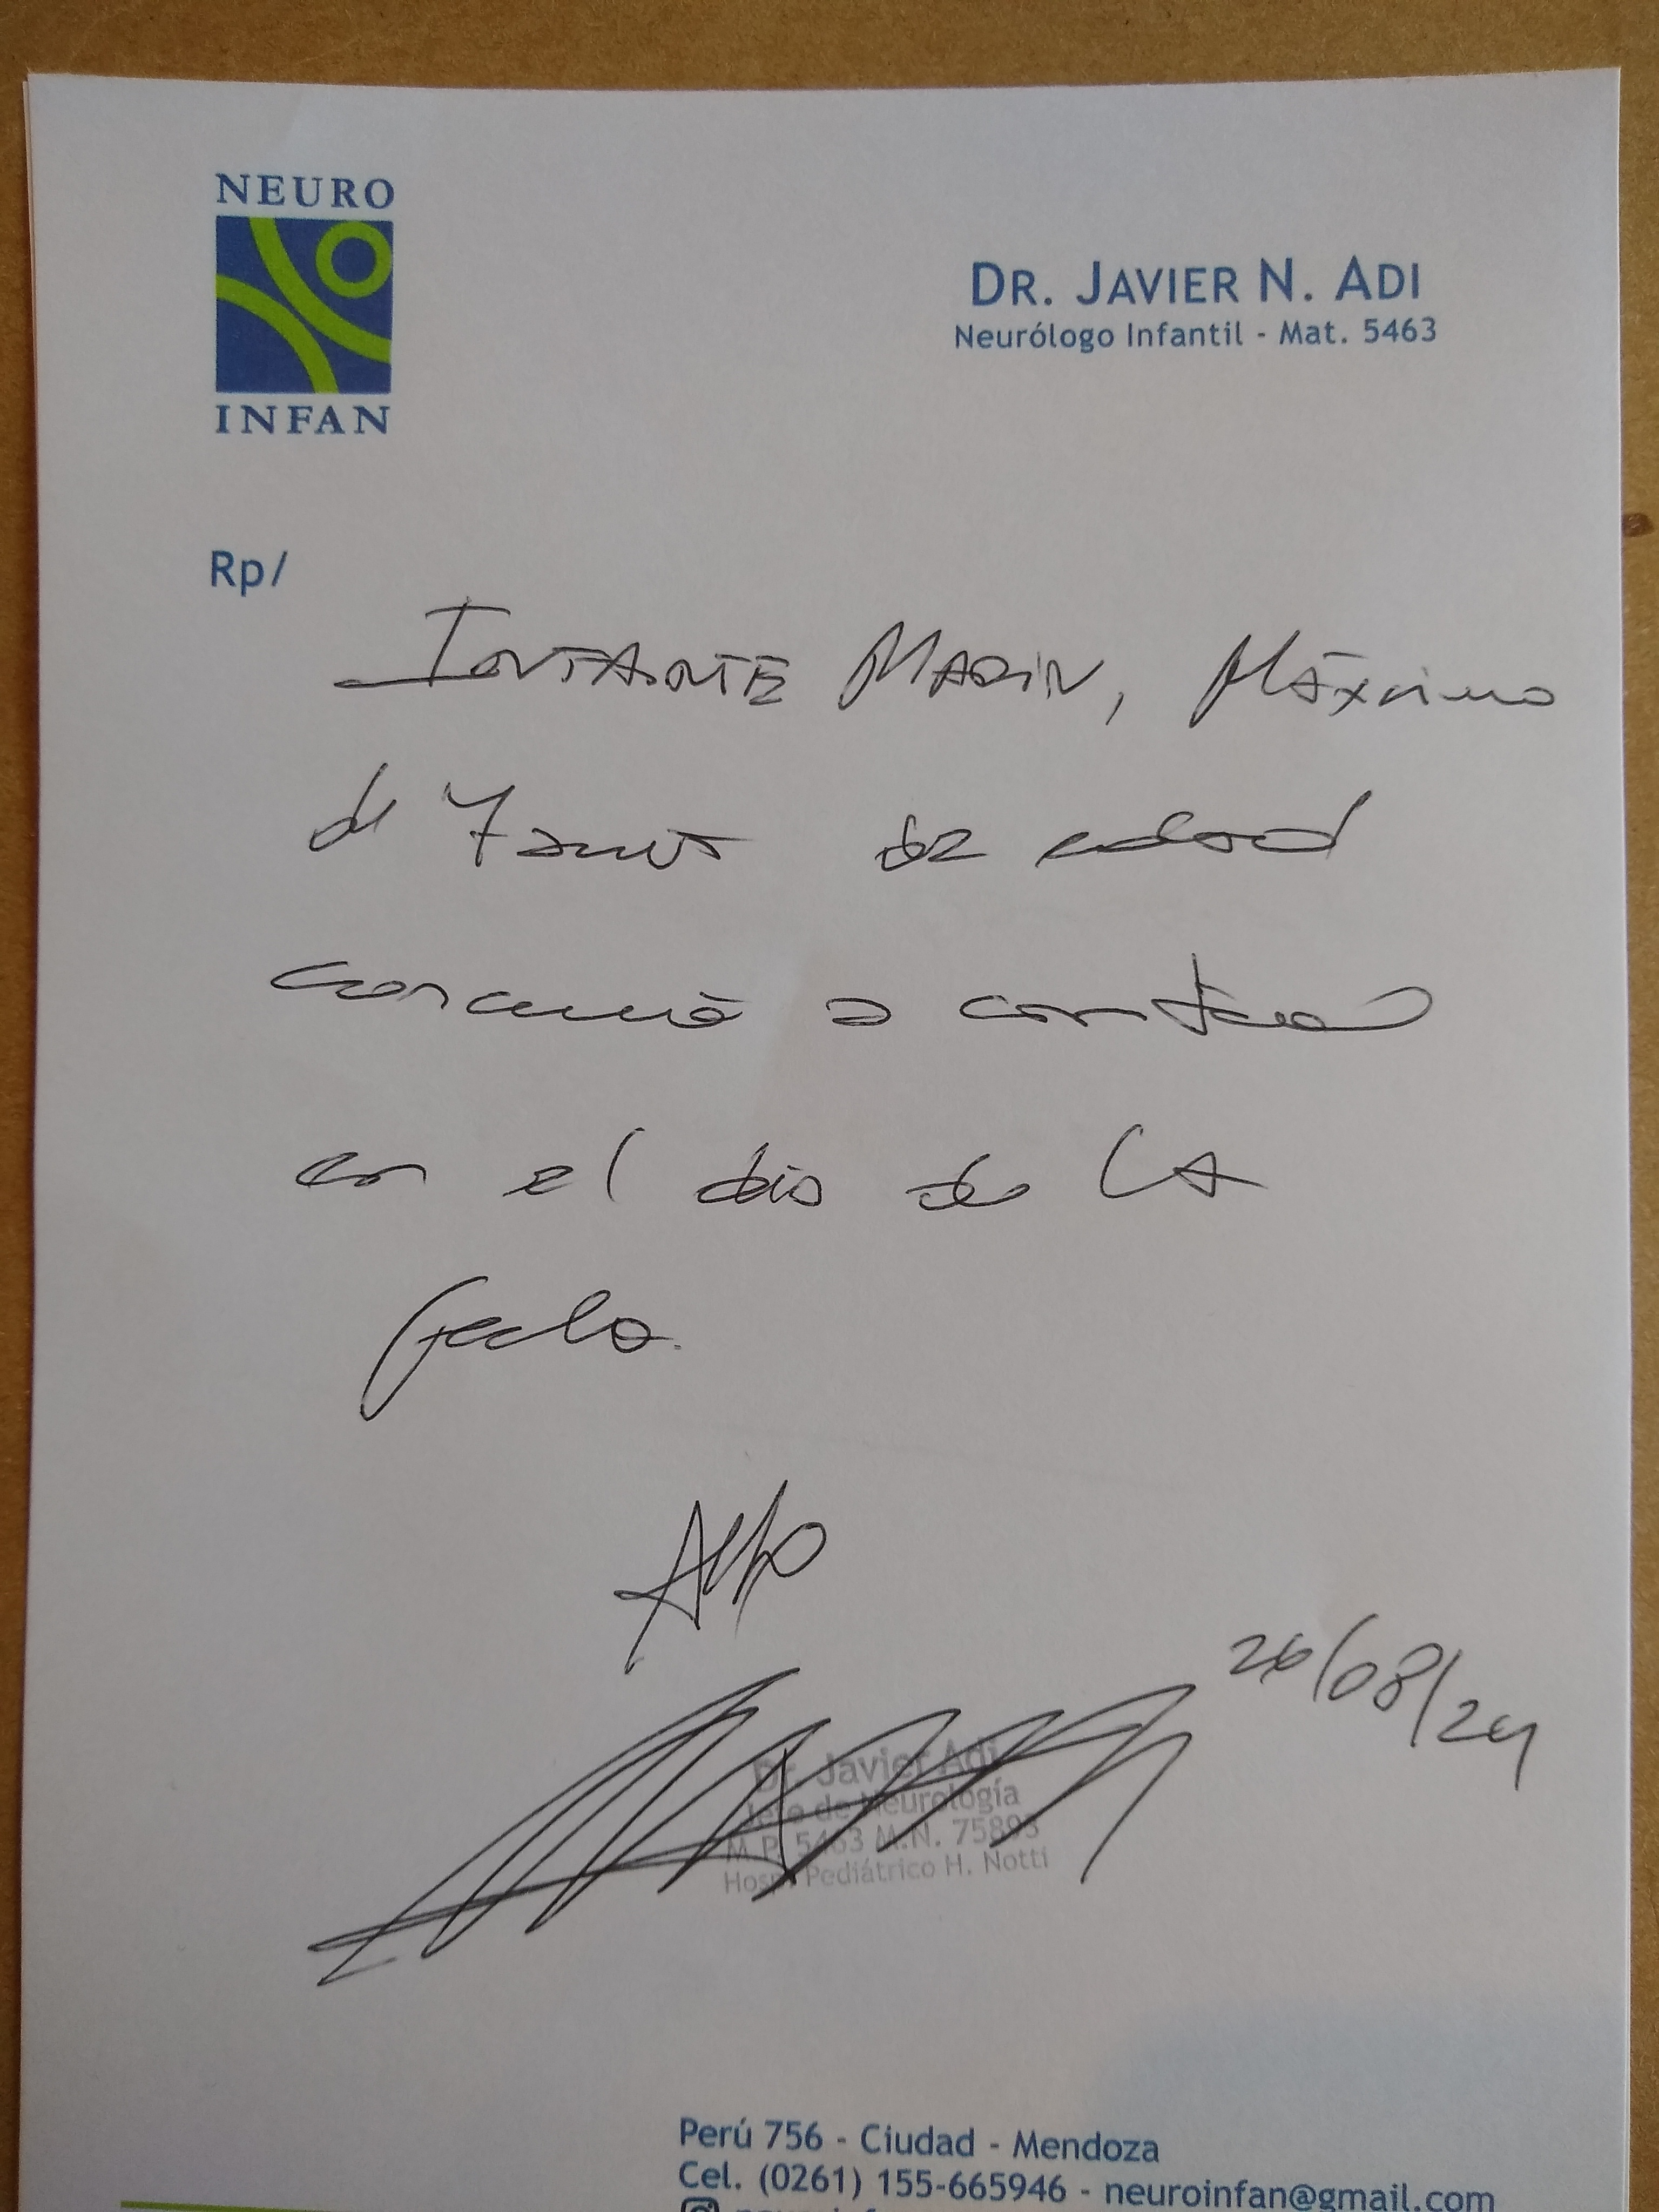 NEURO
INFAN
DR. JAVIER N. ADI
Neurólogo Infantil - Mat. 5463
Rp/
INFANTE MARIN, Máximo
de 7 años de edad
concurrió a control
en el día de LA
fecha.
26/08/24
Dr. Javier Adi
Jefe de Neurología
M.P. 5463 M.N. 75893
Hosp. Pediátrico H. Notti
Perú 756 - Ciudad - Mendoza
Cel. (0261) 155-665946 - neuroinfan@gmail.com